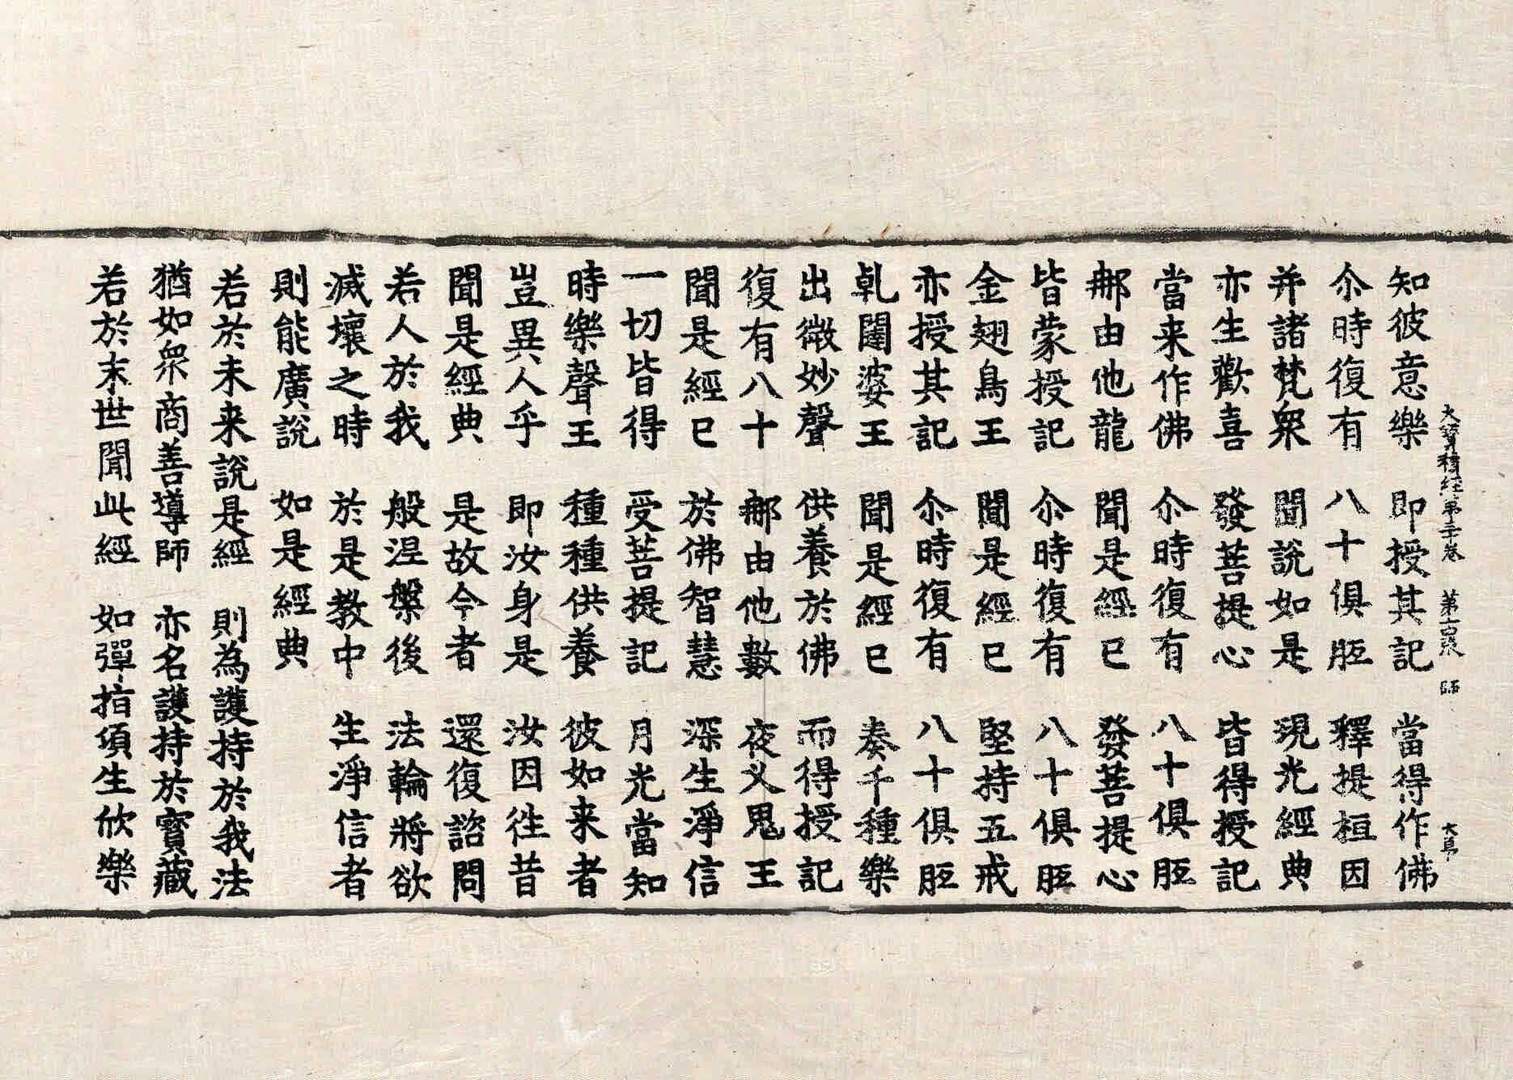 知彼意樂 即授其記 當得作佛
大寶積經第三十卷 第十四張 師 大卓
尒時復有 八十俱胝 釋提桓因
并諸梵衆 聞說如是 現光經典
亦生歡喜 發菩提心 皆得授記
當来作佛 尒時復有 八十俱胝
那由他龍 聞是經已 發菩提心
皆蒙授記 尒時復有 八十俱胝
金翅鳥王 聞是經已 堅持五戒
亦授其記 尒時復有 八十俱胝
乹闥婆王 聞是經已 奏千種樂
出微妙聲 供養於佛 而得授記
復有八十 那由他數 夜义鬼王
聞是經已 於佛智慧 深生淨信
一切皆得 受菩提記 月光當知
時樂聲王 種種供養 彼如来者
豈異人乎 即汝身是 汝因往昔
聞是經典 是故今者 還復諮問
若人於我 般涅槃後 法輪將欲
滅壞之時 於是教中 生淨信者
則能廣說 如是經典
若於未来說是經 則為護持於我法
猶如衆商善導師 亦名護持於寶藏
若於末世聞此經 如彈指頃生欣樂